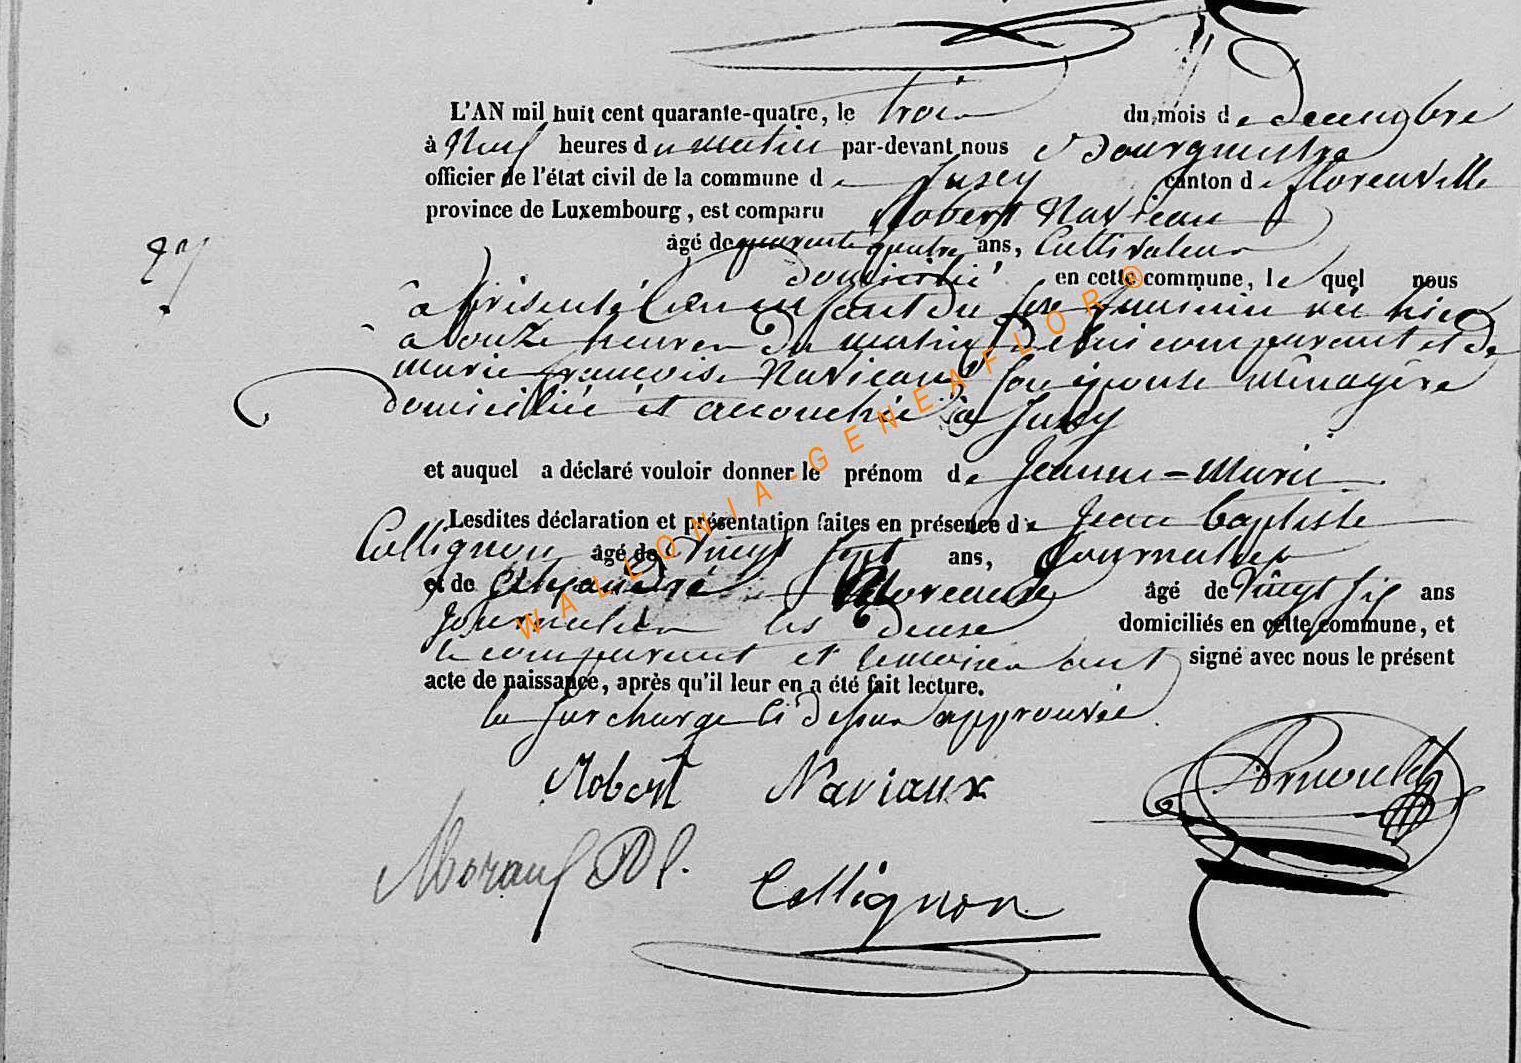 L'AN mil huit cent quarante-quatre, le trois du mois de decembre
à Neuf heures du matin par-devant nous Bourgmestre
officier de l'état civil de la commune de canton de florenville
province de Luxembourg, est comparu Robert Naviaux
âgé de quarante quatre ans, Cultivateur
domicilié en cette commune, lequel nous
a présenté un enfant du sexe feminin né hier
a onze heures du matin de lui comparant et de
marie françoise Naviaux son épouse ménagère
domiciliée et accouchée à
et auquel a déclaré vouloir donner le prénom de Jeanne-Marie
Lesdites déclaration et présentation faites en présence de Jean baptiste
Collignon âgé de vingt sept ans, Journalier
et de Alexandre Moreaux âgé de vingt six ans
Journalier les deux domiciliés en cette commune, et
le comparant et temoins ont signé avec nous le présent
acte de naissance, après qu'il leur en a été fait lecture.
la surcharge ci dessus approuvée.
Robert Naviaux
Collignon
WALLONIA-GENEAFLOR®